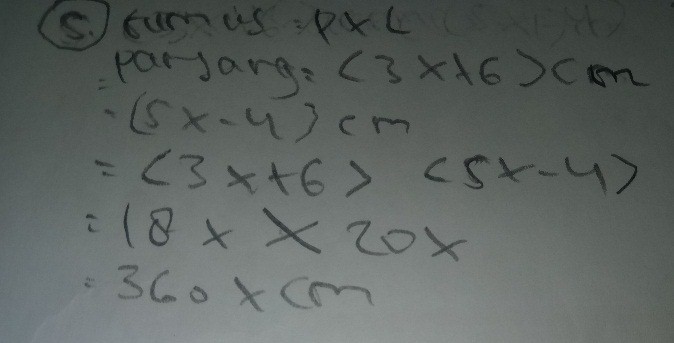 5. Rumus = p x L
Panjang = (3x+6) cm
= (5x-4) cm
= (3x+6) (5x-4)
= 18x X 20x
= 360x cm